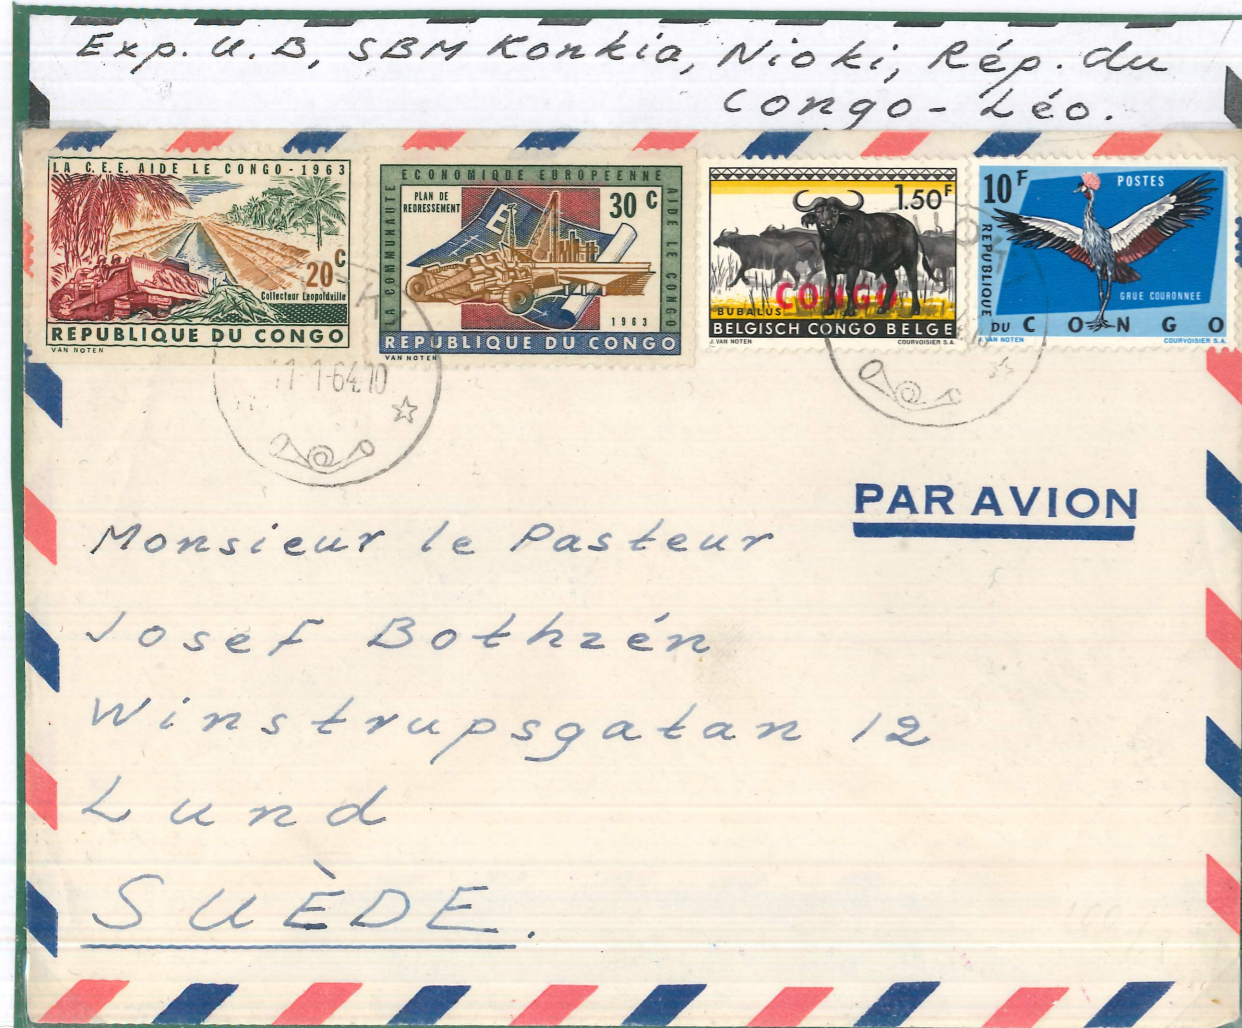 Exp. U.B, SBM Konkia, Nioki, Rép. du
Congo - Léo.
LA C.E.E. AIDE LE CONGO - 1963
20c
Collecteur Léopoldville
REPUBLIQUE DU CONGO
VAN NOTEN
LA COMMUNAUTE ECONOMIQUE EUROPEENNE AIDE LE CONGO
PLAN DE
REDRESSEMENT
30 c
E
1963
REPUBLIQUE DU CONGO
VAN NOTEN
1.50F
CONGO
BUBALUS
BELGISCH CONGO BELGE
J. VAN NOTEN COURVOISIER S.A.
10F
POSTES
REPUBLIQUE
GRUE COURONNEE
DU CONGO
J. VAN NOTEN COURVOISIER S.A.
1-64.10
PAR AVION
Monsieur le Pasteur
Josef Bothzén
Winstrupsgatan 12
Lund
SUÈDE.